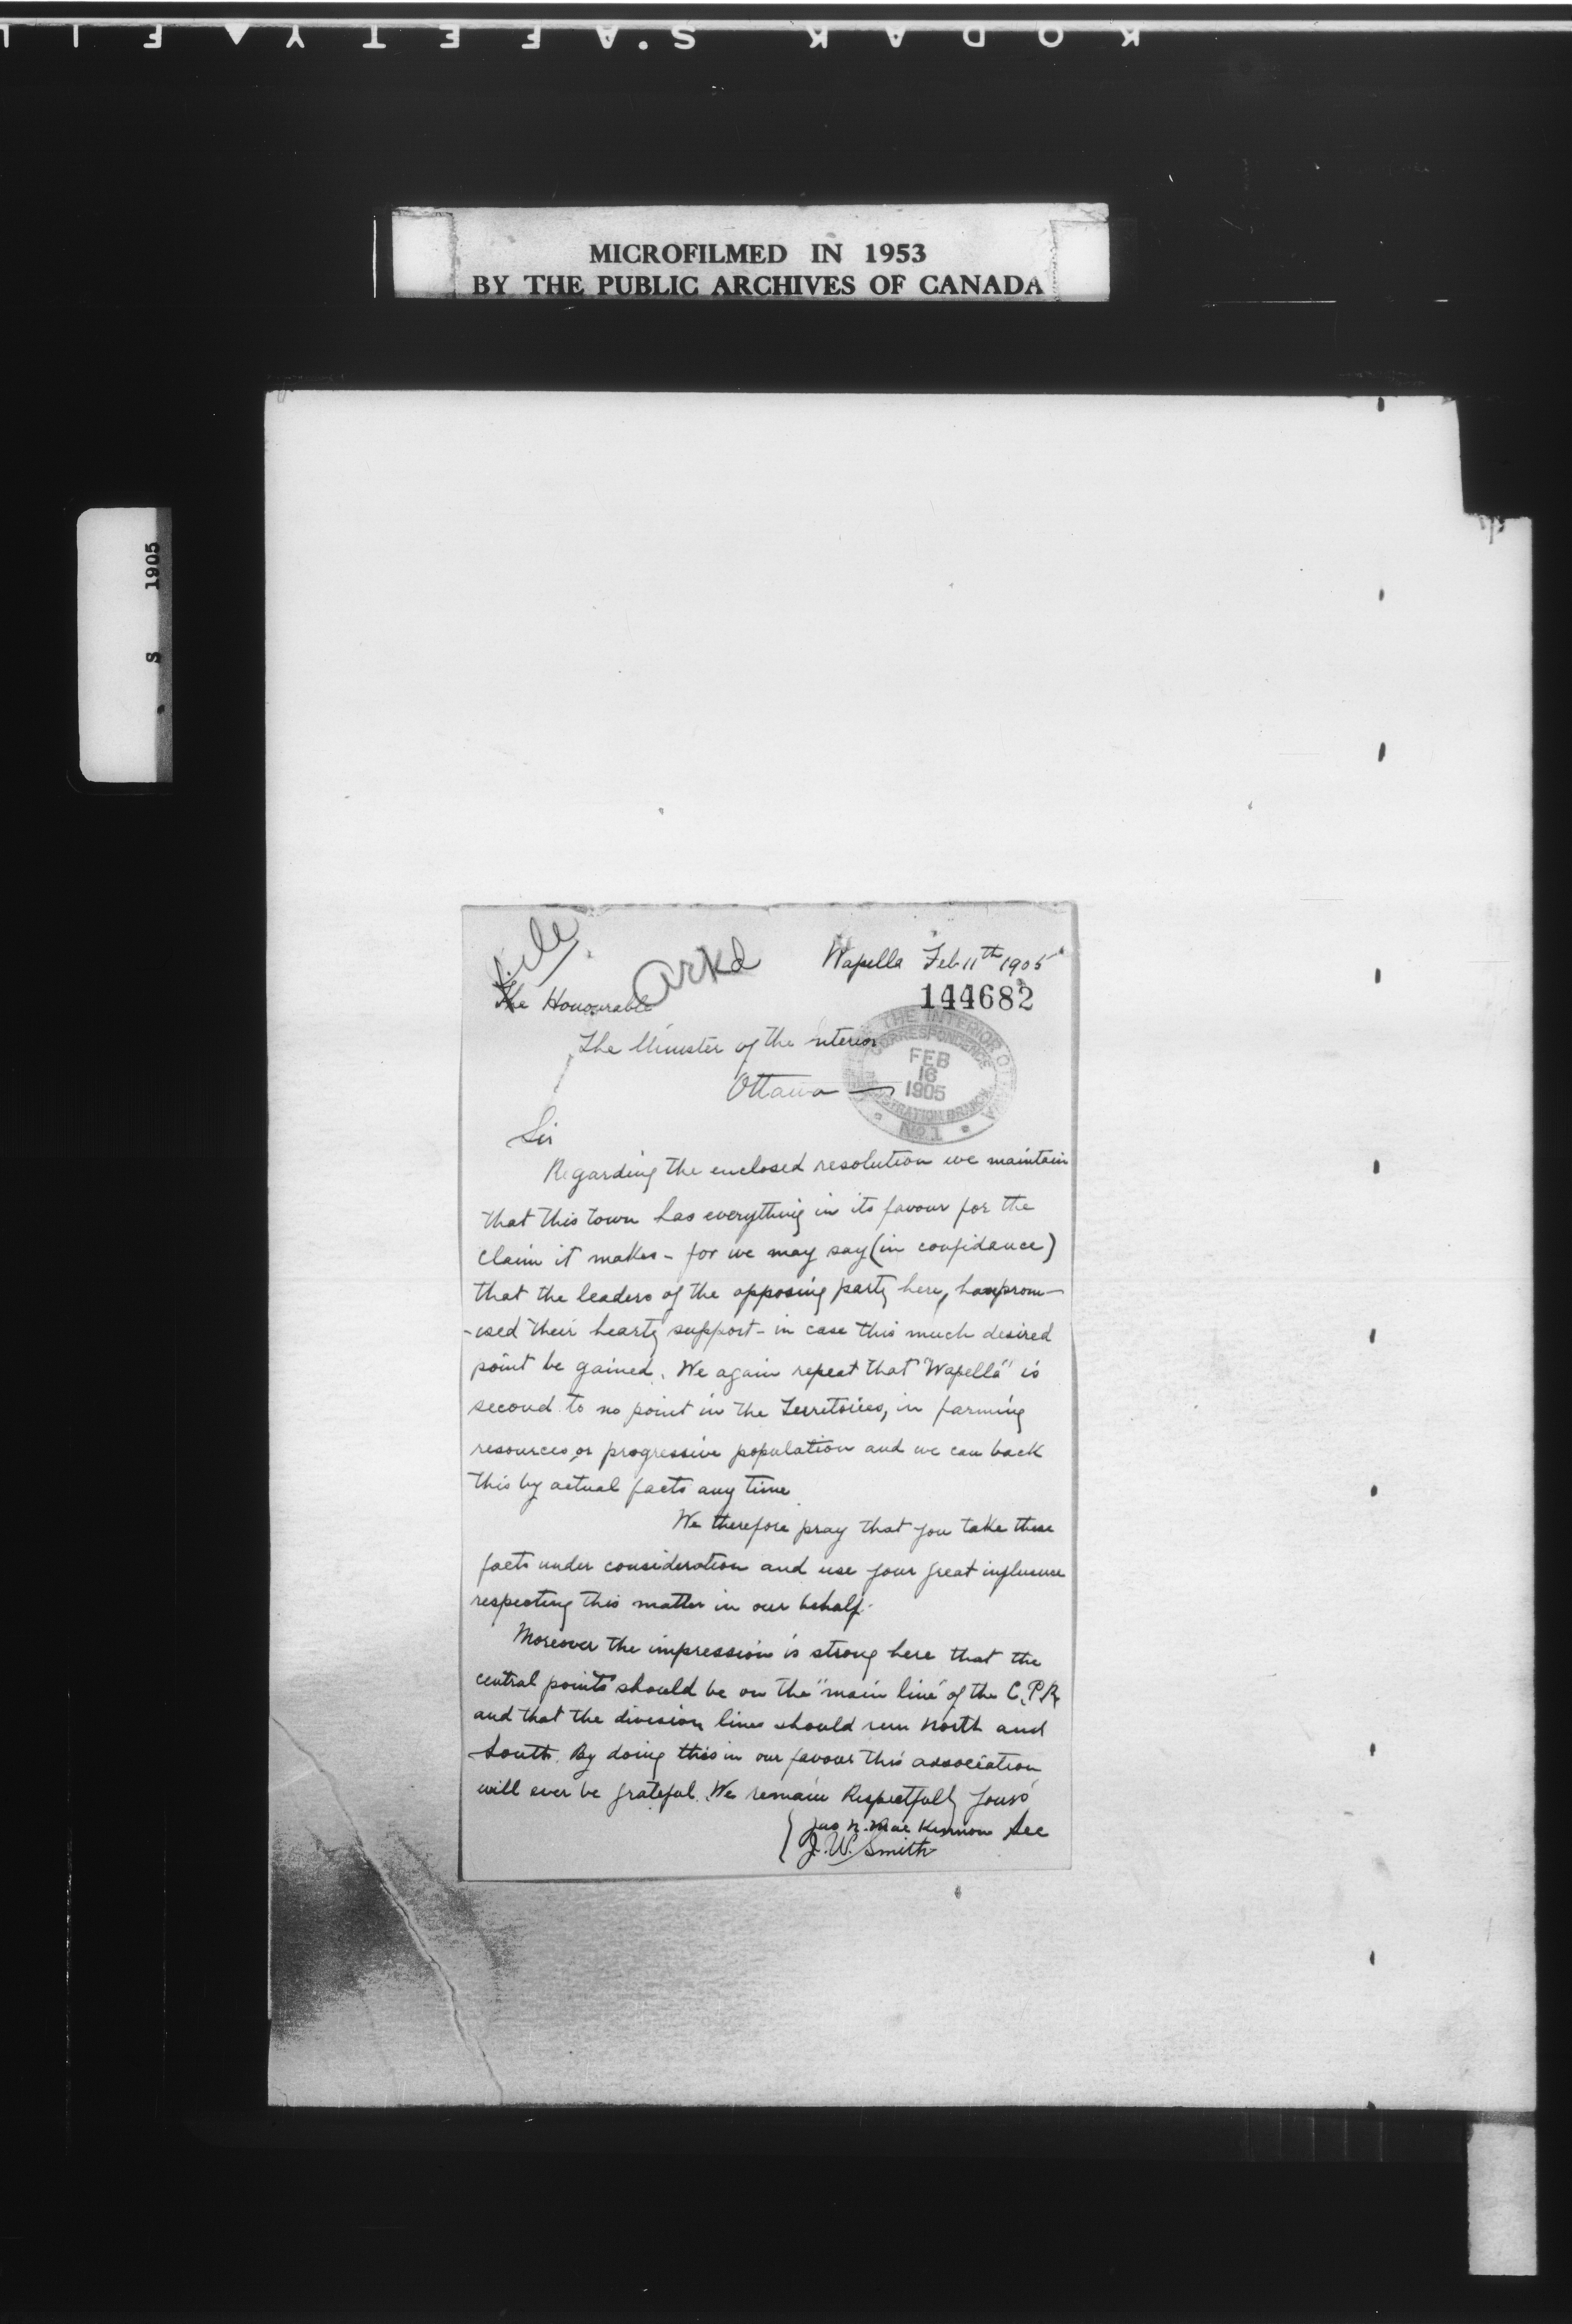 KODAK SAFETY FIL
MICROFILMED IN 1953
BY THE PUBLIC ARCHIVES OF CANADA
S 1905
File
Arkd
Wapella Feb 11th 1905
144682
The Honourable
The Minister of the Interior
Ottawa
THE INTERIOR
CORRESPONDENCE
FEB
16
1905
REGISTRATION BRANCH
No. 1
Sir
Regarding the enclosed resolution we maintain
that this town has everything in its favour for the
claim it makes - for we may say (in confidance)
that the leaders of the opposing party here, have prom-
-ised their hearty support - in case this much desired
point be gained. We again repeat that "Wapella" is
second to no point in the Territories, in farming
resources, or progressive population and we can back
this by actual facts any time
We therefore pray that you take these
facts under consideration and use your great influence
respecting this matter in our behalf.
Moreover the impression is strong here that the
central points should be on the "main line" of the C.P.R.
and that the division lines should run North and
South. By doing this in our favour this association
will ever be grateful. We remain Respectfully Yours
Jno N. MacKinnon Sec
J. W. Smith